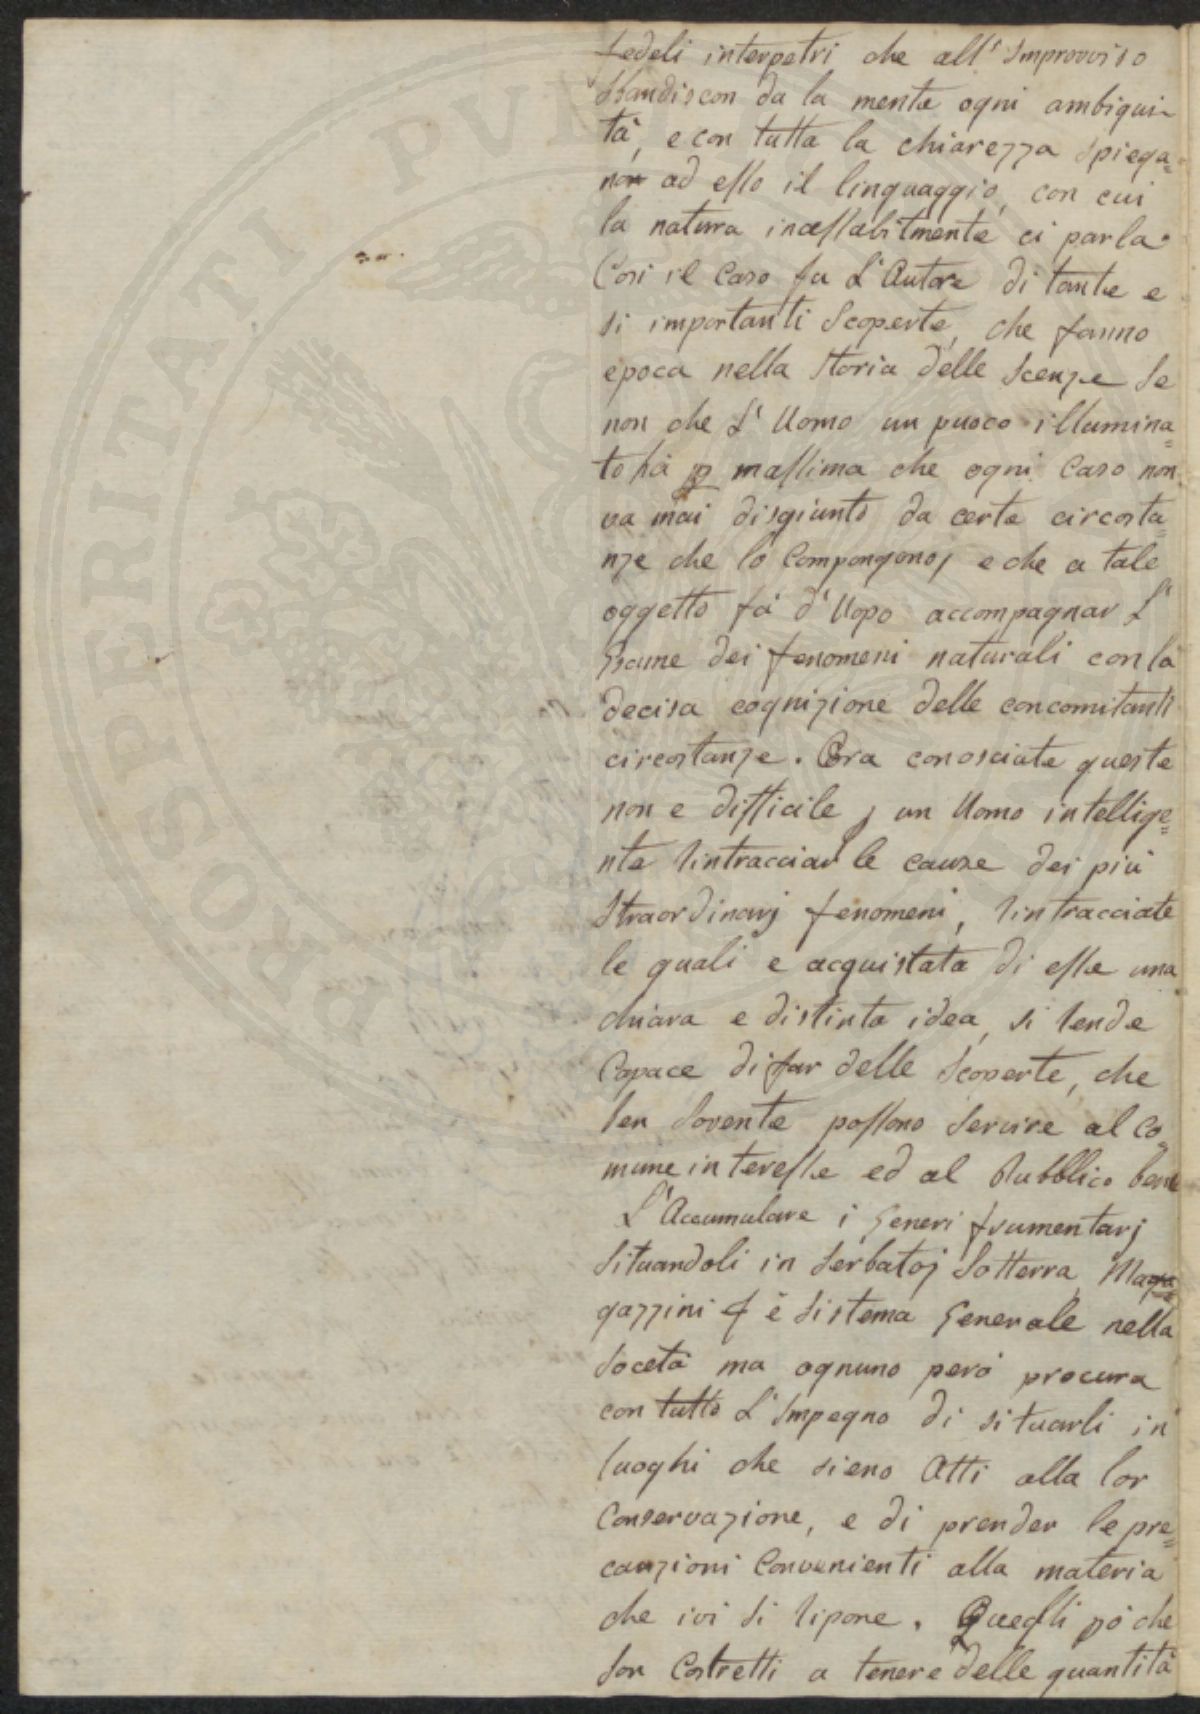 fedeli interpetri che all'improvviso
sbandiscon da la mente ogni ambigui-
tà, e con tutta la chiarezza spiega=
non ad esso il linguaggio, con cui
la natura ineffabilmente ci parla.
Così il Caso fu L'Autore di tante e
si importanti Scoperte, che fanno
epoca nella storia delle Scenze Se
non che L'Uomo un puoco illumina=
to hà p massima che ogni Caso non
va mai disgiunto da certe circosta=
nze che lo Compongono, e che a tale
oggetto fà d'Uopo accompagnar L'
Esame dei fenomeni naturali con la
decisa cognizione delle concomitanti
circostanze. Ora conosciute queste
non e difficile p un Uomo intellige=
nte rintracciar le cause dei più
Straordinarj fenomeni, rintracciate
le quali e acquistata di esse una
chiara e distinta idea, si rende
Capace di far delle Scoperte, che
ben Sovente possono Servire al Co=
mune interesse ed al Pubblico bene
L'Accumulare i Generi frumentarj
Situandoli in Serbatoj Sotterra, Maga
gazzini è Sistema Generale nella
Società ma ognuno però procura
con tutto L'Impegno di situarli in
luoghi che sieno Atti alla lor
Conservazione, e di prender le pre=
cauzioni Convenienti alla materia
che ivi si ripone. Quegli pò che
Son Costretti a tenere delle quantità
PROSPERITATI PVBL